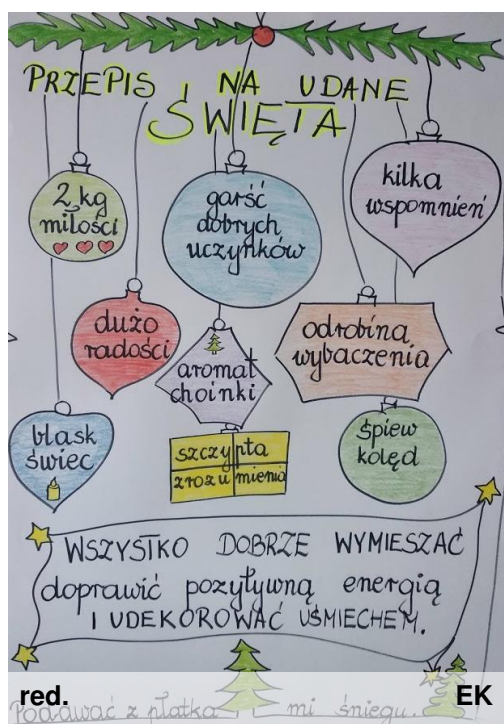 PRZEPIS NA UDANE
ŚWIĘTA
2 kg
miłości
garść
dobrych
uczynków
kilka
wspomnień
dużo
radości
aromat
choinki
odrobina
wybaczenia
blask
świec
szczypta
zrozumienia
śpiew
kolęd
WSZYSTKO DOBRZE WYMIESZAĆ
doprawić pozytywną energią
I UDEKOROWAĆ UŚMIECHEM.
Podawać z płatkami śniegu.
red. EK